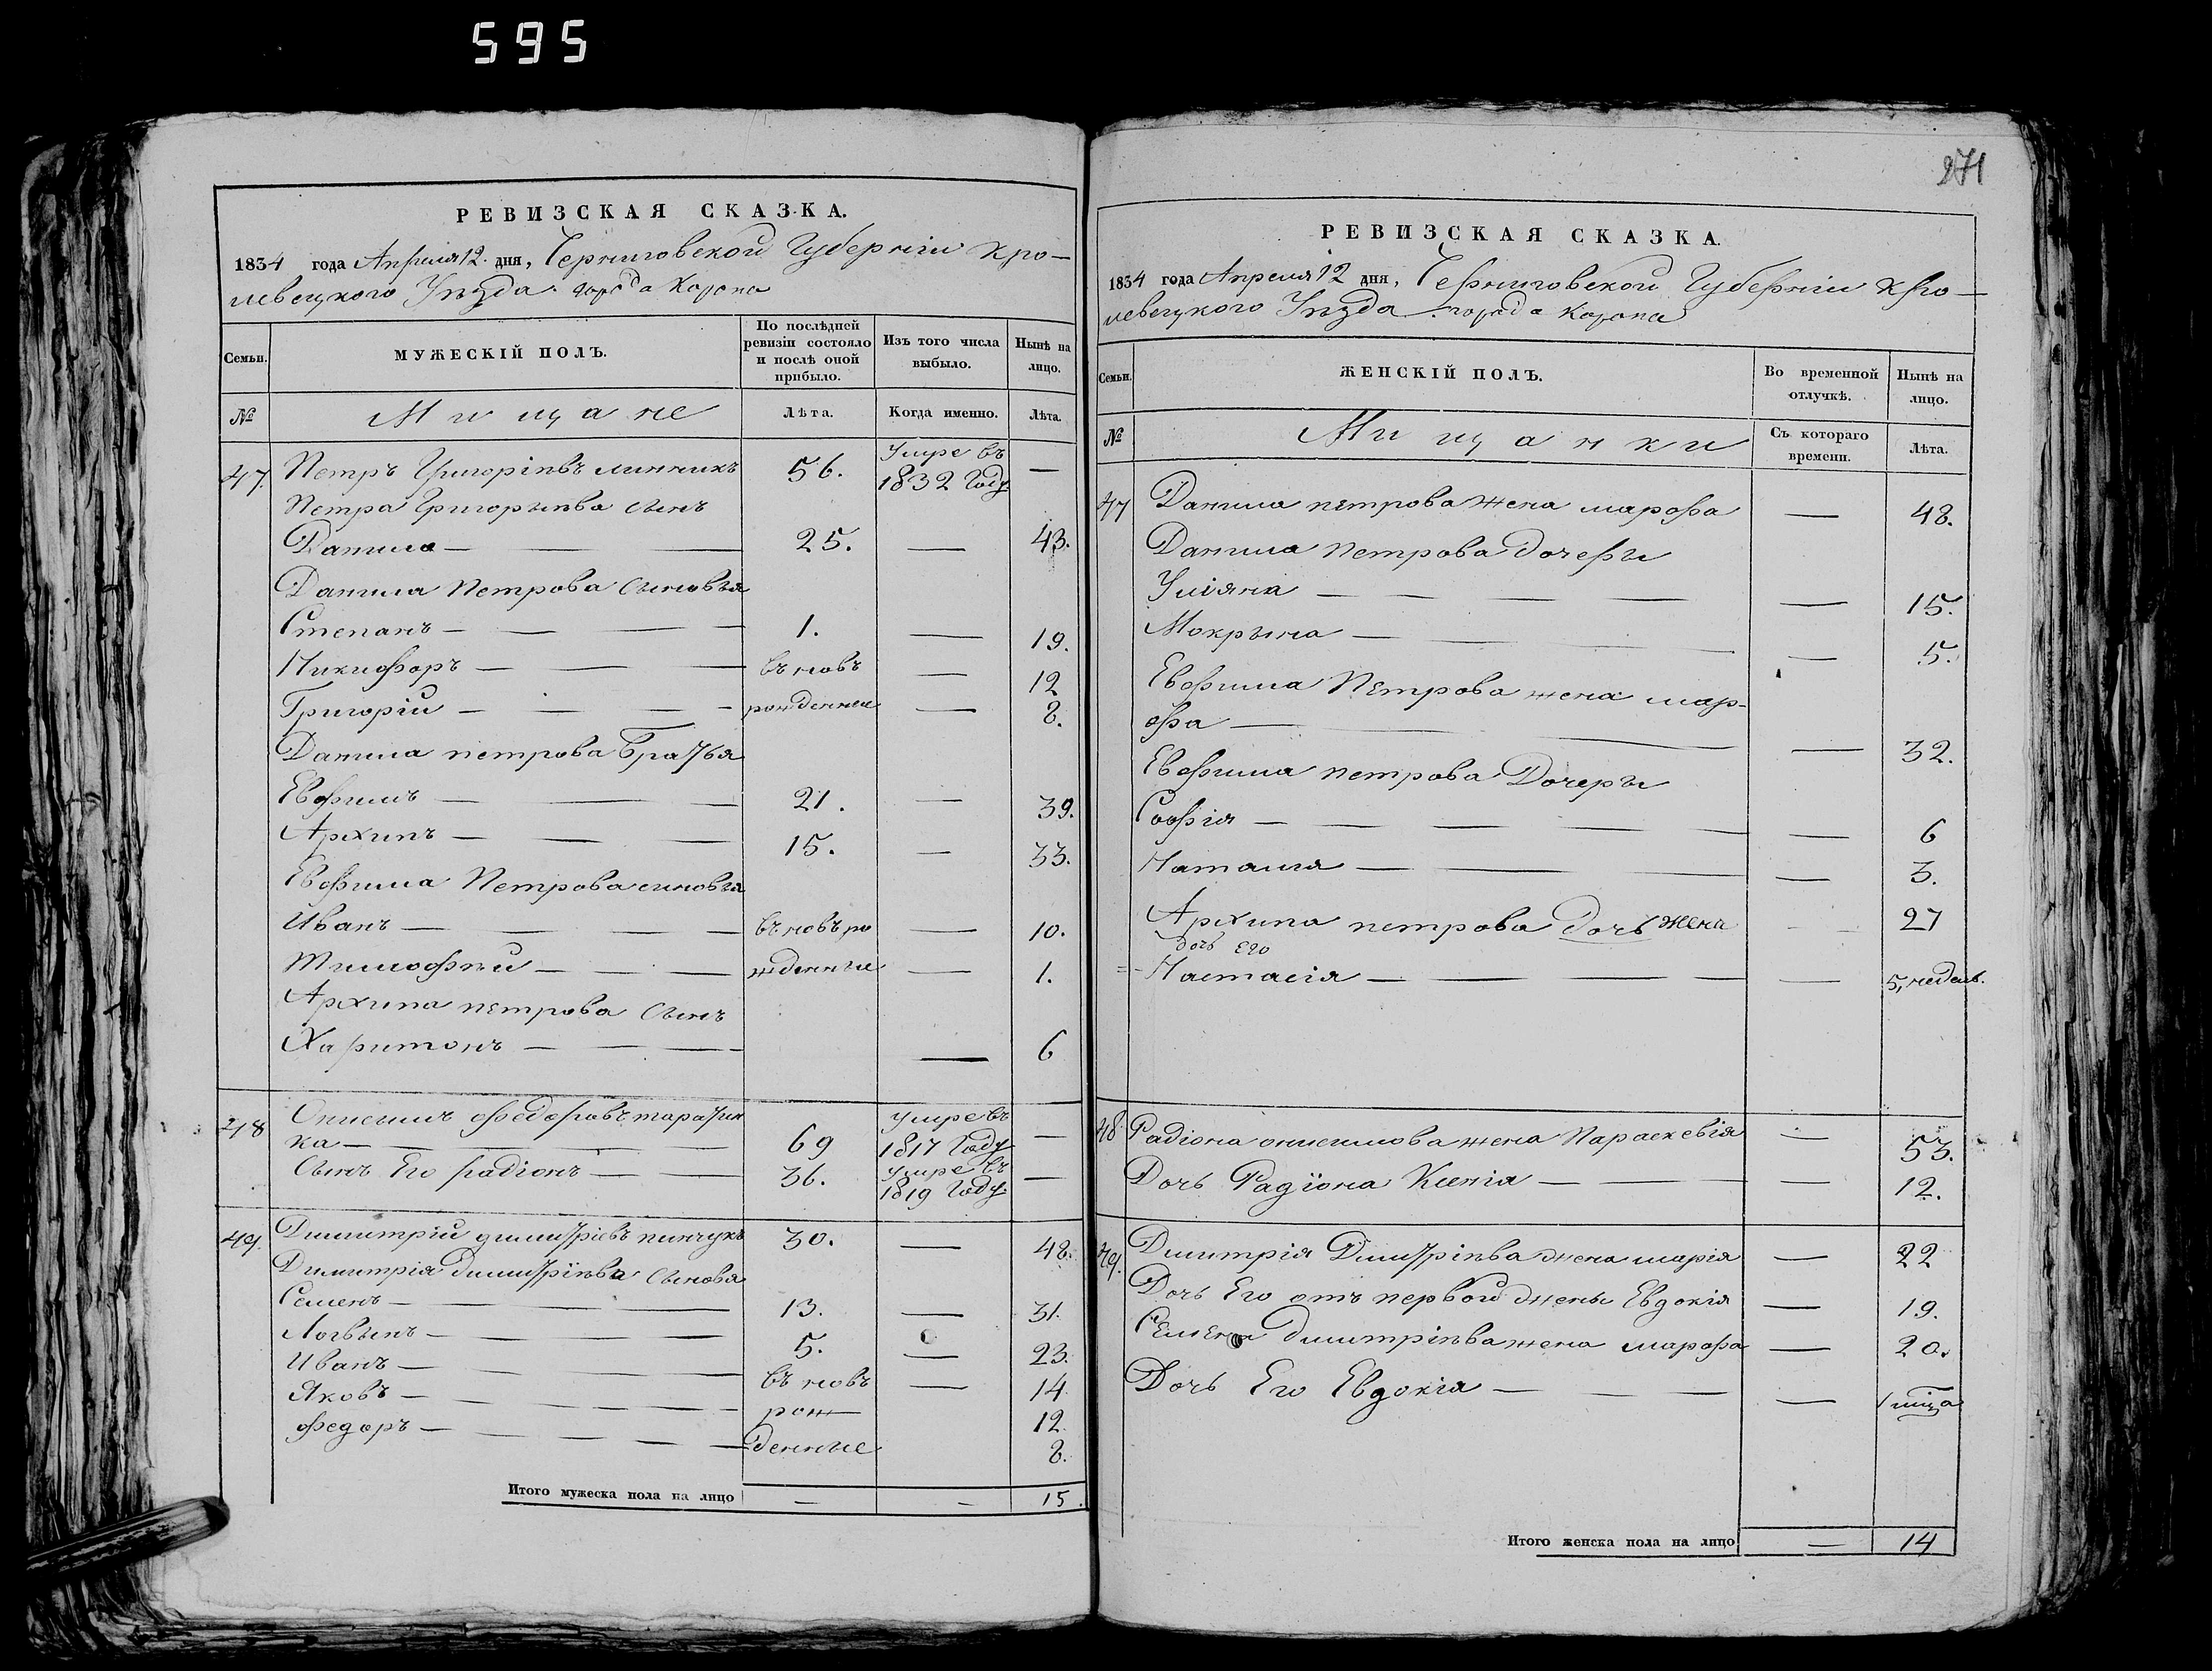 595
РЕВИЗСКАЯ СКАЗКА.
1834 года Апреля 12. дня, Черниговской Губернии Кро-
левецкого Уезда. города Коропа
Семьи.
МУЖЕСКІЙ ПОЛЪ.
По послѣдней ревизіи состояло и послѣ оной прибыло.
Изъ того числа выбыло.
Нынѣ на лицо.
№
Мищане
Лѣта.
Когда именно.
Лѣта.
47. Петръ Григоріевъ 56. Умре въ 1832 Году —
Петра Григорьева сынъ
Данило — 25. — 43.
Данила Петрова сыновья
Степанъ — 1. — 19.
Никифоръ — въ новъ — 12
Григорій — рожденные — 8.
Данила петрова братья
Евфимъ — 21. — 39.
Архипъ — 15. — 33.
Евфима Петрова синовья
Иванъ — въ новъ ро — 10.
Тимофѣй — жденные — 1.
Архипа петрова сынъ
Харитонъ — — 6
48 Онисимъ федоровъ
ка — 69 умре въ 1817 Году —
сынъ Его радіонъ — 36. умре въ 1819 Году. —
49. Димитрій димитріевъ пинчукъ 30. — 48.
Димитрія димитріѣва сынова
Семенъ — 13. — 31.
Логвынъ — 5. — 23.
Иванъ — въ новъ — 14
Яковъ — рож 12
федоръ — денные 8.
Итого мужеска пола на лицо — — 15.
271
РЕВИЗСКАЯ СКАЗКА.
1834 года Апреля 12 дня, Черниговской Губерніи Кро-
левецкого Уѣзда. города Коропа
Семьи.
ЖЕНСКІЙ ПОЛЪ.
Во временной отлучкѣ.
Нынѣ на лицо.
№
Мищанки
Съ котораго времени.
Лѣта.
47 Данила петрова жена марфа — 48.
Данила петрова дочеры
Уліяна — — 15.
Мокрына — — 5.
Евфима Петрова жена мар-
фа — — 32.
Евфима петрова Дочеры
Софія — — 6
Наталия — — 3.
Архипа петрова дочь жена 27
дочь Его
Настасія — — 5, недель.
48 Радіона онисимова жена Параскевія — 53.
Дочь Радіона Ксенія — — 12.
49. Дмитрія Дмитріѣва жена марія — 22
Дочь Его отъ первой жены Евдокія — 19.
Семена дмитріѣва жена марфа — 20.
Дочь Его Евдокія — —
Итого женска пола на лицо — 14